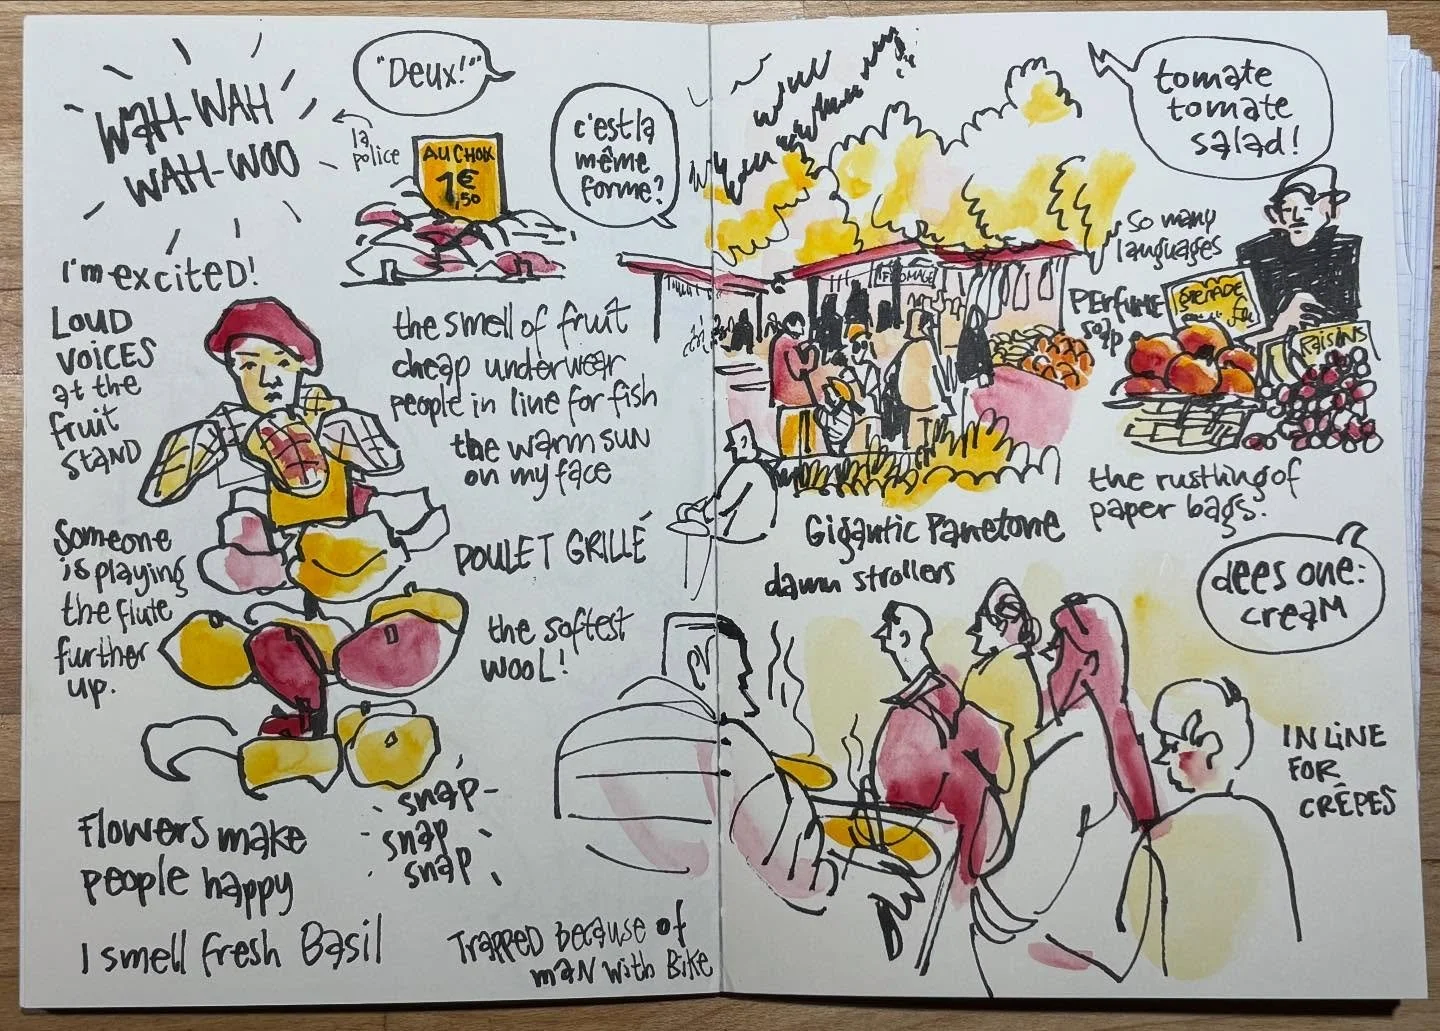 WAH-WAH
WAH-WOO
la
police
"Deux!"
AU CHOIX
1€
,50
c'est la
même
forme?
I'm excited!
Loud
voices
at the
fruit
stand
the smell of fruit
cheap underwear
people in line for fish
the warm sun
on my face
Someone
is playing
the flute
further
up.
POULET GRILLÉ
the softest
wool!
snap
snap
snap
Flowers make
people happy
I smell fresh Basil
Trapped because of
man with Bike
tomate
tomate
salad!
So many
languages
FROMAGE
PERFUME
soap
GRENADE
RAISINS
the rustling of
paper bags.
Gigantic Panetone
damn strollers
dees one:
cream
IN LINE
FOR
CRÊPES